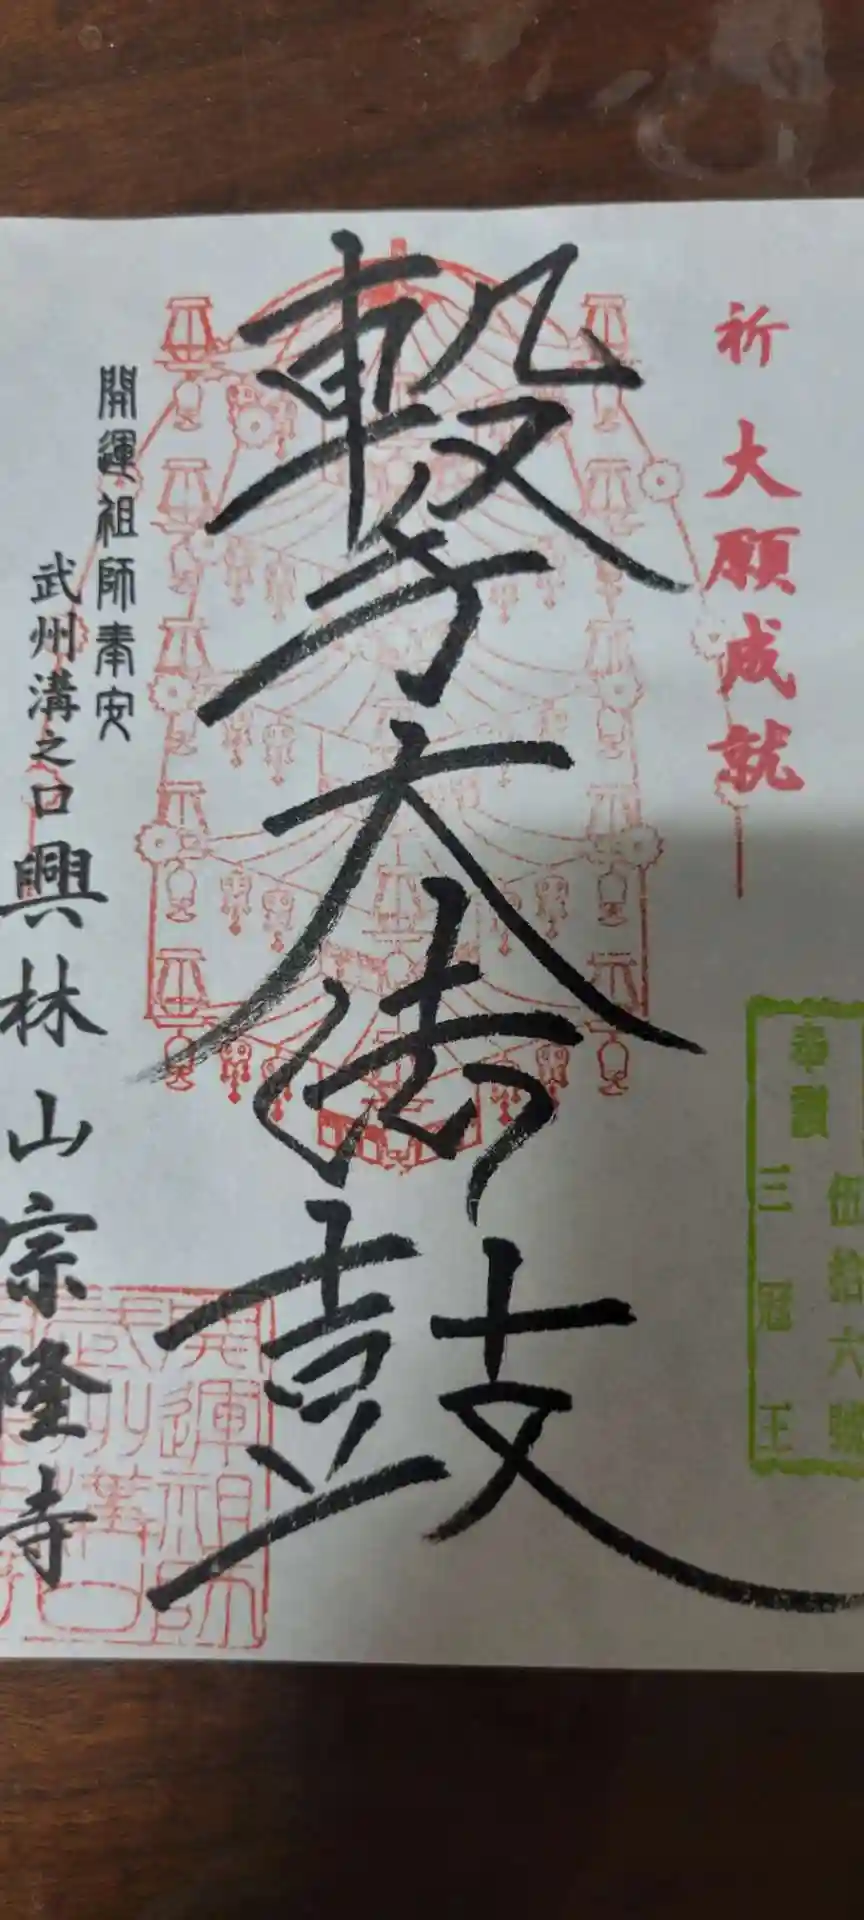 祈 大願成就
奉讃
伍拾六號
三冠王
撃大法鼓
開運祖師奉安
武州溝之口 興林山宗隆寺
開運祖師